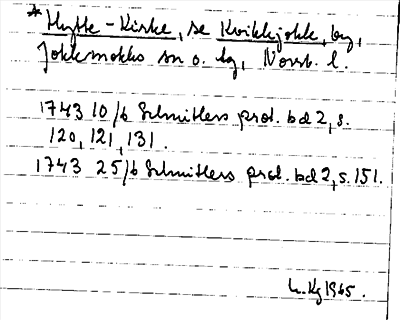 * Hytte-Kirke, se Kvikkjokk, by,
Jokkmokks sn o. lg, Norrb. l.
1743 10/6 Schnitlers prot. bd 2, s.
120, 121, 131.
1743 25/6 Schnitlers prot. bd 2, s. 151.
1965.